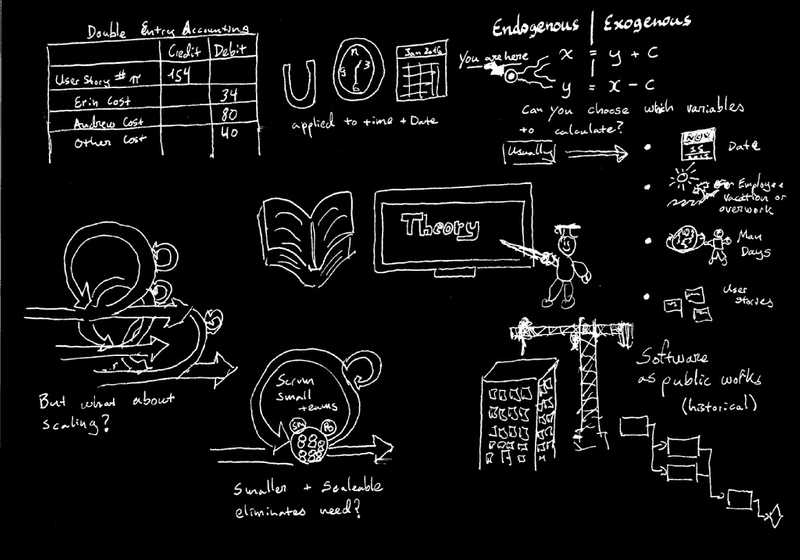 Double Entry Accounting
Credit Debit
User Story # π 154
Erin Cost 34
Andrew Cost 80
Other Cost 40
Jan 2016
applied to time + Date
Endogenous | Exogenous
You are here
x = y + c
y = x - c
Can you choose which variables
to calculate?
Usually
Date
Employee
vacation or
overwork
Man
Days
User
Stories
Theory
But what about
scaling?
Scrum
small
teams
SM PO
Smaller + Scaleable
eliminates need?
Software
as public works
(historical)